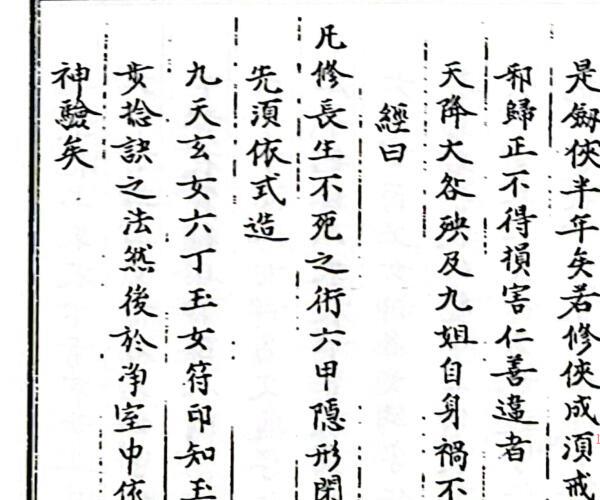 是劍俠半年矣若修俠成須戒
邪歸正不得損害仁善違者
天降大咎殃及九姐自身禍不
經曰
凡修長生不死之術六甲隐形
先須依式造
九天玄女六丁玉女符印知玉
步捻訣之法然後於淨室中依
神驗矣